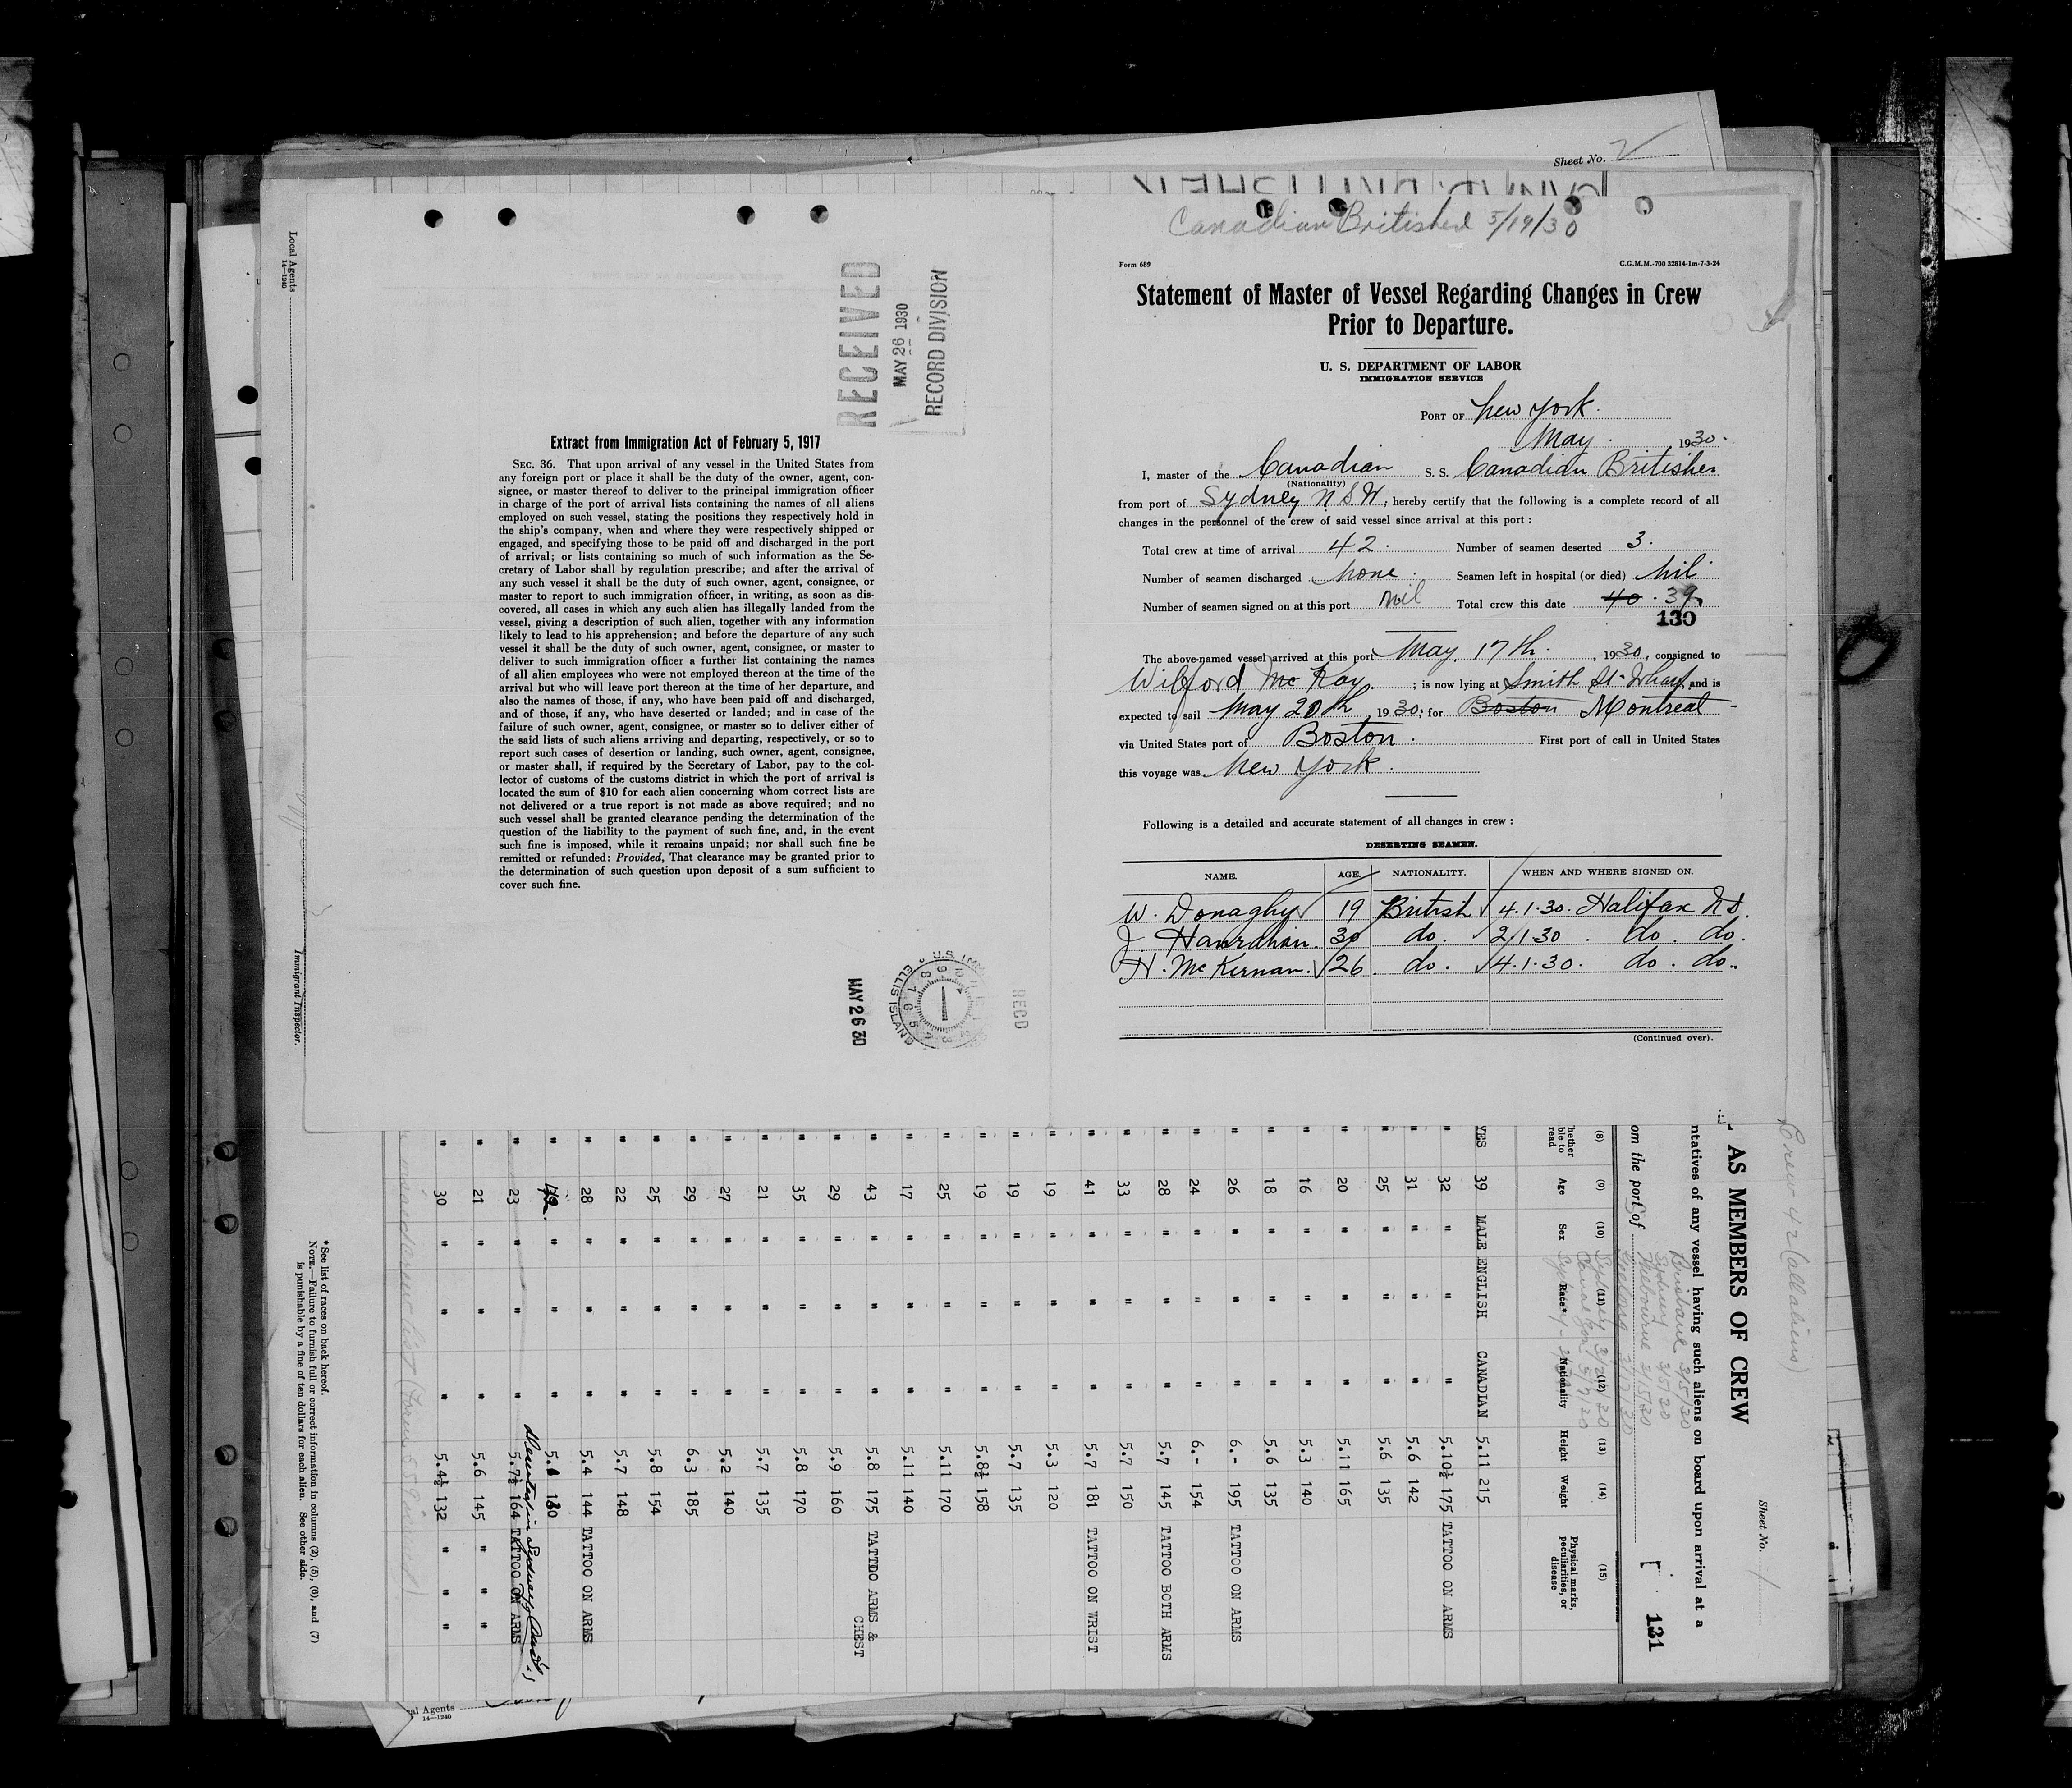 Sheet No. 2
Canadian Britisher 5/19/30
Form 689
C.G.M.M.-700 32814-1m-7-3-24
Statement of Master of Vessel Regarding Changes in Crew
Prior to Departure.
U. S. DEPARTMENT OF LABOR
IMMIGRATION SERVICE
PORT OF New York.
May. 1930.
I, master of the Canadian S. S. Canadian Britisher
(Nationality)
from port of Sydney N.S.W., hereby certify that the following is a complete record of all
changes in the personnel of the crew of said vessel since arrival at this port:
Total crew at time of arrival 42. Number of seamen deserted 3.
Number of seamen discharged None. Seamen left in hospital (or died) Nil
Number of seamen signed on at this port Nil Total crew this date 40. 39.
130
The above-named vessel arrived at this port May. 17th. , 1930, consigned to
Wilford McKay. ; is now lying at Smith St. Wharf, and is
expected to sail May 20th, 1930; for Boston Montreal
via United States port of Boston. First port of call in United States
this voyage was New York.
Following is a detailed and accurate statement of all changes in crew:
DESERTING SEAMEN.
NAME. AGE. NATIONALITY. WHEN AND WHERE SIGNED ON.
W. Donaghy 19 British 4.1.30. Halifax N.S.
J. Hanrahan. 30 do. 2/1 30. do. do.
H. McKernan. 26. do. 4.1.30. do. do.
(Continued over).
RECEIVED
MAY 26 1930
RECORD DIVISION
Extract from Immigration Act of February 5, 1917
SEC. 36. That upon arrival of any vessel in the United States from
any foreign port or place it shall be the duty of the owner, agent, con-
signee, or master thereof to deliver to the principal immigration officer
in charge of the port of arrival lists containing the names of all aliens
employed on such vessel, stating the positions they respectively hold in
the ship's company, when and where they were respectively shipped or
engaged, and specifying those to be paid off and discharged in the port
of arrival; or lists containing so much of such information as the Se-
cretary of Labor shall by regulation prescribe; and after the arrival of
any such vessel it shall be the duty of such owner, agent, consignee, or
master to report to such immigration officer, in writing, as soon as dis-
covered, all cases in which any such alien has illegally landed from the
vessel, giving a description of such alien, together with any information
likely to lead to his apprehension; and before the departure of any such
vessel it shall be the duty of such owner, agent, consignee, or master to
deliver to such immigration officer a further list containing the names
of all alien employees who were not employed thereon at the time of the
arrival but who will leave port thereon at the time of her departure, and
also the names of those, if any, who have been paid off and discharged,
and of those, if any, who have deserted or landed; and in case of the
failure of such owner, agent, consignee, or master so to deliver either of
the said lists of such aliens arriving and departing, respectively, or so to
report such cases of desertion or landing, such owner, agent, consignee,
or master shall, if required by the Secretary of Labor, pay to the col-
lector of customs of the customs district in which the port of arrival is
located the sum of $10 for each alien concerning whom correct lists are
not delivered or a true report is not made as above required; and no
such vessel shall be granted clearance pending the determination of the
question of the liability to the payment of such fine, and, in the event
such fine is imposed, while it remains unpaid; nor shall such fine be
remitted or refunded: Provided, That clearance may be granted prior to
the determination of such question upon deposit of a sum sufficient to
cover such fine.
MAY 26 30
ELLIS ISLAND
RECD
Local Agents
14—1240
Immigrant Inspector.
Crew 42 (all aliens)
Sheet No. 1
AS MEMBERS OF CREW
ntatives of any vessel having such aliens on board upon arrival at a
om the port of
131
Brisbane 3/5/30
Sydney
Melbourne
Geelong
(8) (9) (10) (11) (12) (13) (14) (15)
hether ble to read Age Sex Race* Nationality Height Weight Physical marks, peculiarities, or disease
YES 39 MALE ENGLISH CANADIAN 5.11 215
" 32 " " " 5.10½ 175 TATTOO ON ARMS
" 31 " " " 5.6 142
" 25 " " " 5.6 135
" 20 " " " 5.11 165
" 16 " " " 5.3 140
" 18 " " " 5.6 135
" 26 " " " 6.- 195 TATTOO ON ARMS
" 24 " " " 6.- 154
" 28 " " " 5.7 145 TATTOO BOTH ARMS
" 33 " " " 5.7 150
" 41 " " " 5.7 181 TATTOO ON WRIST
" 19 " " " 5.3 120
" 19 " " " 5.7 135
" 19 " " " 5.8½ 158
" 25 " " " 5.11 170
" 17 " " " 5.11 140
" 43 " " " 5.8 175 TATTOO ARMS & CHEST
" 29 " " " 5.9 160
" 35 " " " 5.8 170
" 21 " " " 5.7 135
" 27 " " " 5.2 140
" 29 " " " 6.3 185
" 25 " " " 5.8 154
" 22 " " " 5.7 148
" 28 " " " 5.4 144 TATTOO ON ARMS
" " " " 130
Deserted in Sydney
" 23 " " " 5.7½ 164 TATTOO ON ARMS
" 21 " " " 5.6 145 " " "
" 30 " " " 5.4½ 132 " " "
* See list of races on back hereof.
NOTE.—Failure to furnish full or correct information in columns (2), (5), (6), and (7)
is punishable by a fine of ten dollars for each alien. See other side.
al Agents
14—1240